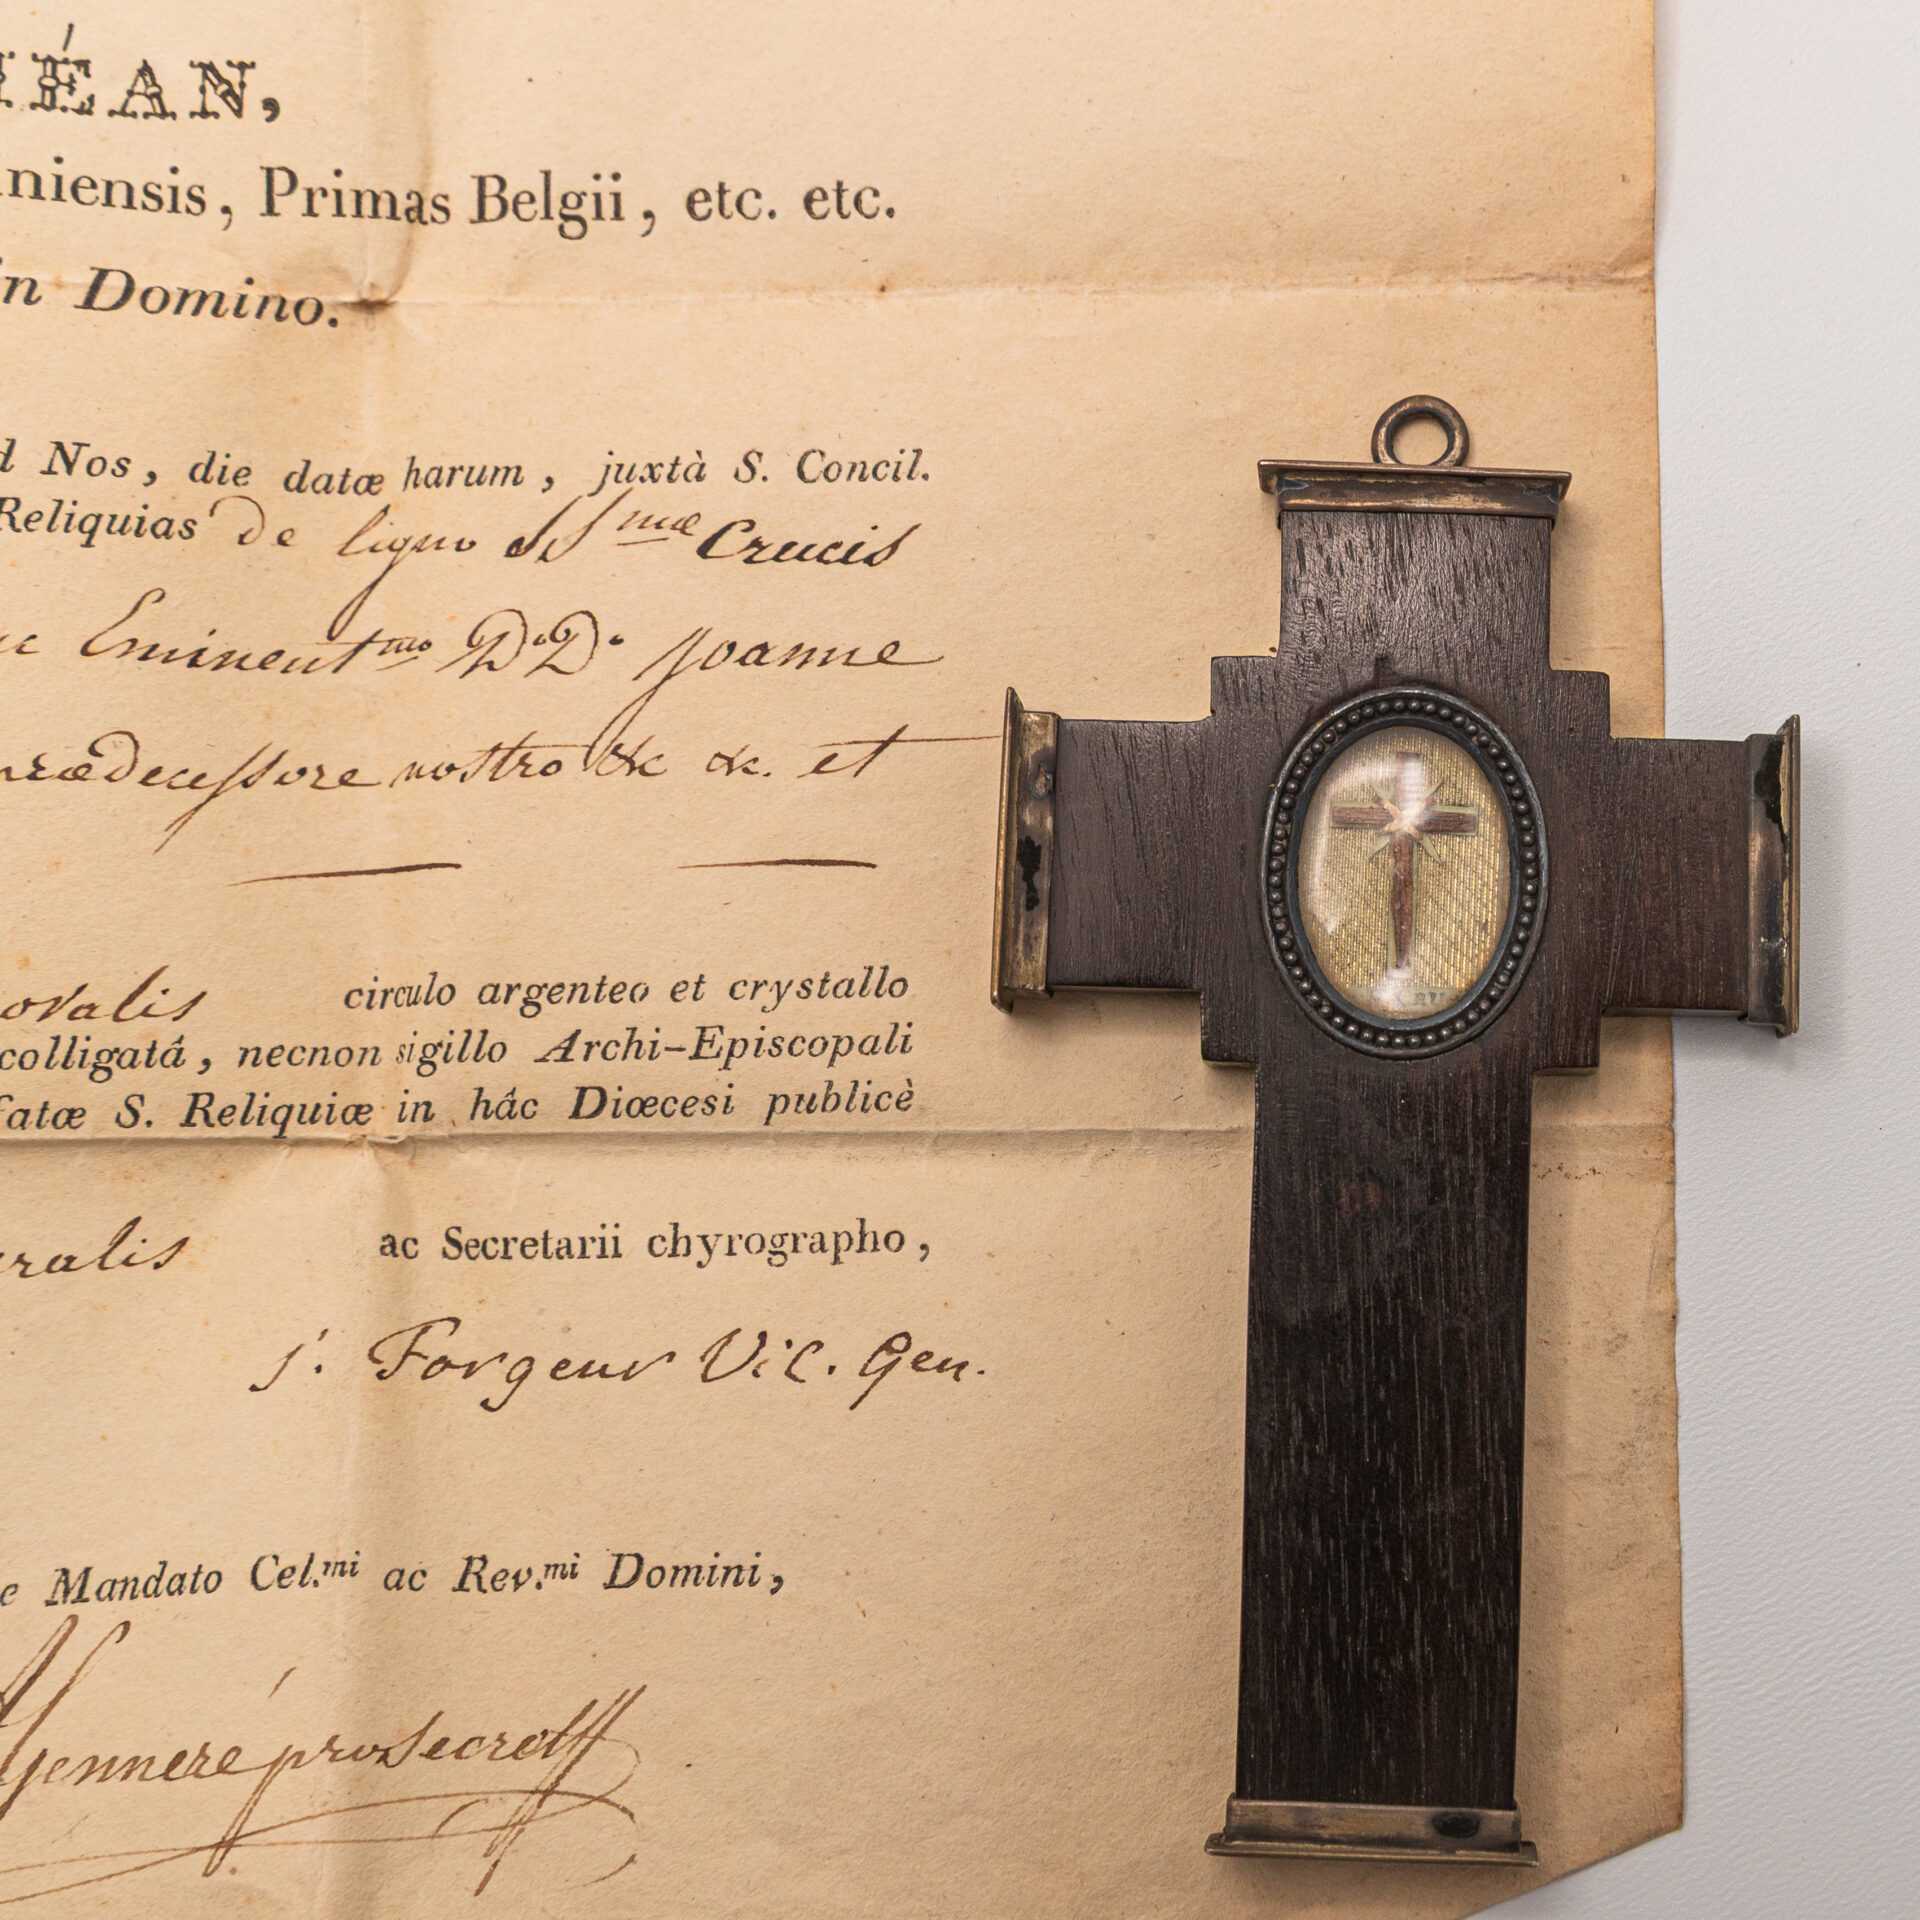 ÉAN,
niensis, Primas Belgii, etc. etc.
in Domino.
d Nos, die datæ harum, juxtà S. Concil.
Reliquias de ligno SSmæ Crucis
Eminentmo D.D. Joanne
prædecessore nostro &c &c. et
ovalis circulo argenteo et crystallo
colligatâ, necnon sigillo Archi-Episcopali
fatæ S. Reliquiæ in hâc Diœcesi publicè
ralis ac Secretarii chyrographo,
J. Forgeur Vic. Gen.
e Mandato Cel.mi ac Rev.mi Domini,
prosecret